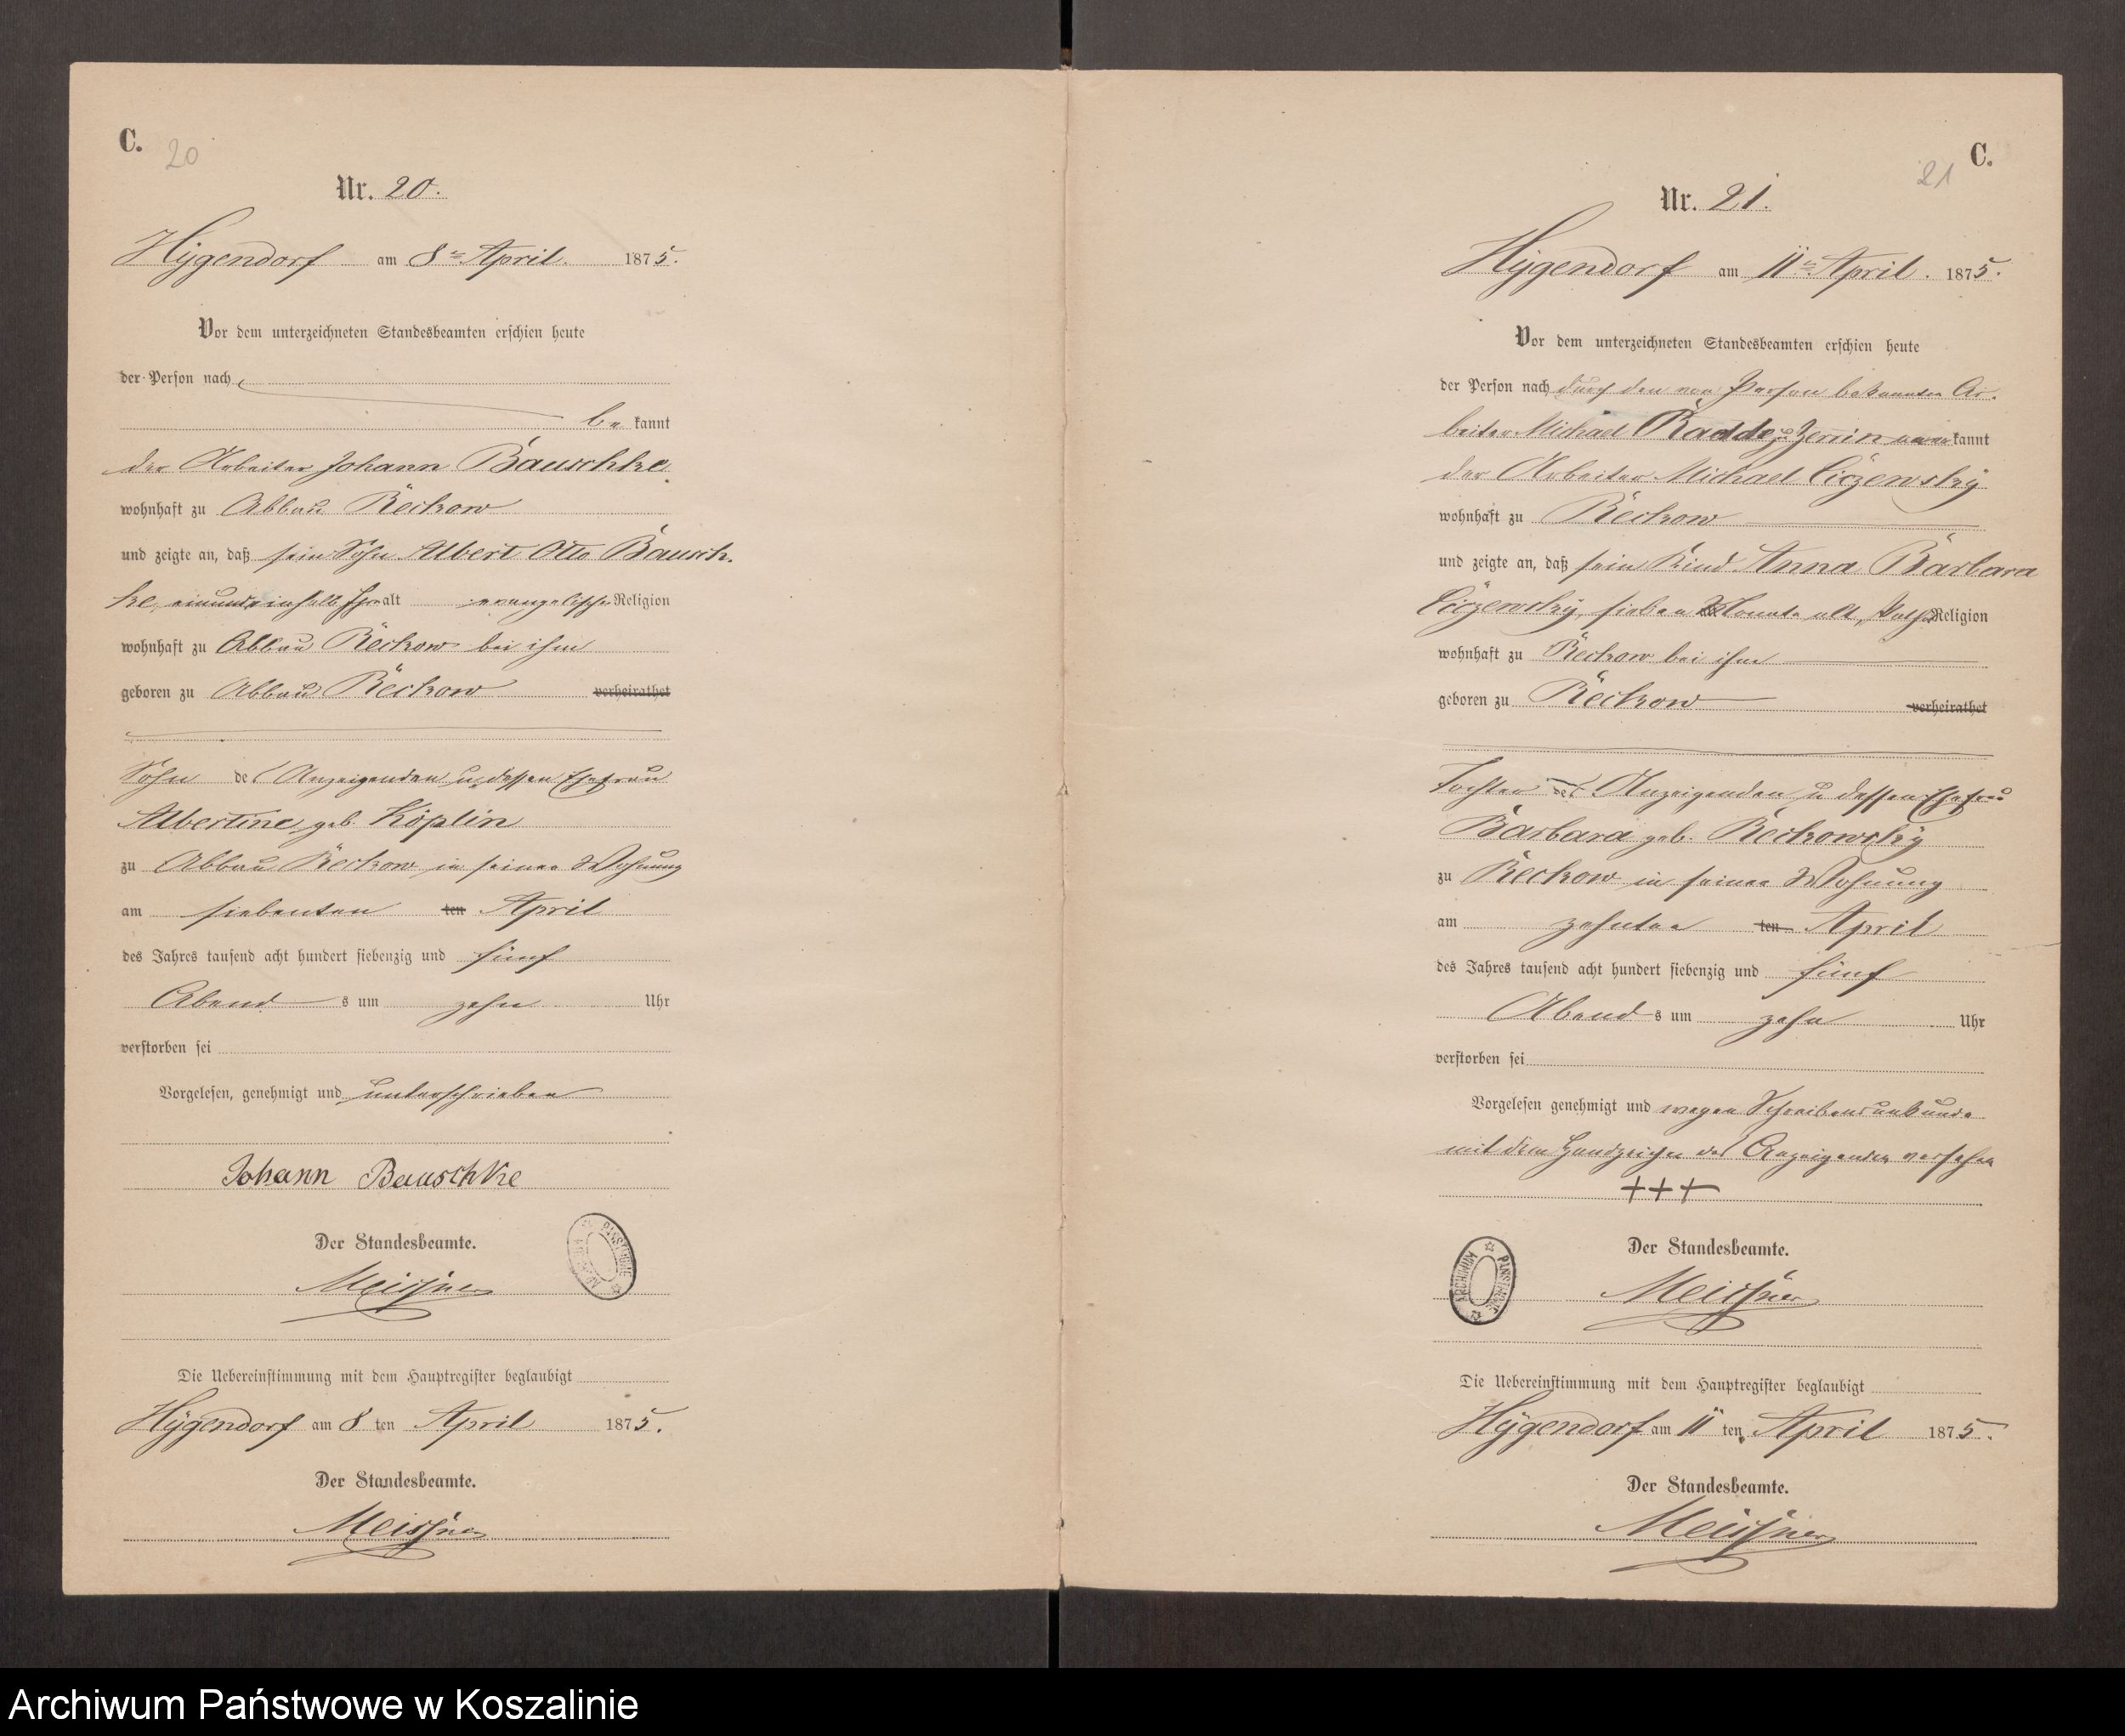 C. 20
Nr. 20.
Hÿgendorf am 8ten April. 1875.
Vor dem unterzeichneten Standesbeamten erschien heute
der Person nach
be kannt
der Arbeiter Johann Bauschke
wohnhaft zu Abbau Reckow
und zeigte an, daß sein Sohn Albert Otto Bausch-
ke, alt evangelischer Religion
wohnhaft zu Abbau Reckow bei ihm
geboren zu Abbau Reckow verheirathet
Sohn des Anzeigenden u dessen Ehefrau
Albertine, geb. Köplin
zu Abbau Reckow in seiner Wohnung
am siebenten ten April
des Jahres tausend acht hundert siebenzig und fünf
Abend s um zehn Uhr
verstorben sei
Vorgelesen, genehmigt und unterschrieben
Johann Bauschke
Der Standesbeamte.
Meissner
ARCHIWUM PAŃSTWOWE
Die Uebereinstimmung mit dem Hauptregister beglaubigt
Hÿgendorf am 8 ten April 1875.
Der Standesbeamte.
Meissner
C.
21
Nr. 21.
Hÿgendorf am 11ten April. 1875.
Vor dem unterzeichneten Standesbeamten erschien heute
der Person nach durch den von Person bekannten Ar-
beiter Michael Radde, z. Zerrin kannt
der Arbeiter Michael Ciczewskÿ
wohnhaft zu Reckow
und zeigte an, daß sein Kind Anna Barbara
Ciczewskÿ, sieben Monate alt, kath. Religion
wohnhaft zu Reckow bei ihm
geboren zu Reckow verheirathet
Tochter des Anzeigenden u dessen Ehefrau
Barbara geb. Reckowskÿ
zu Reckow in seiner Wohnung
am zehnten ten April
des Jahres tausend acht hundert siebenzig und fünf
Abend s um zehn Uhr
verstorben sei
Vorgelesen genehmigt und wegen Schreibensunkunde
mit dem Handzeichen des Anzeigenden versehen
+++
Der Standesbeamte.
Meissner
ARCHIWUM PAŃSTWOWE
Die Uebereinstimmung mit dem Hauptregister beglaubigt
Hÿgendorf am 11 ten April 1875.
Der Standesbeamte.
Meissner
Archiwum Państwowe w Koszalinie